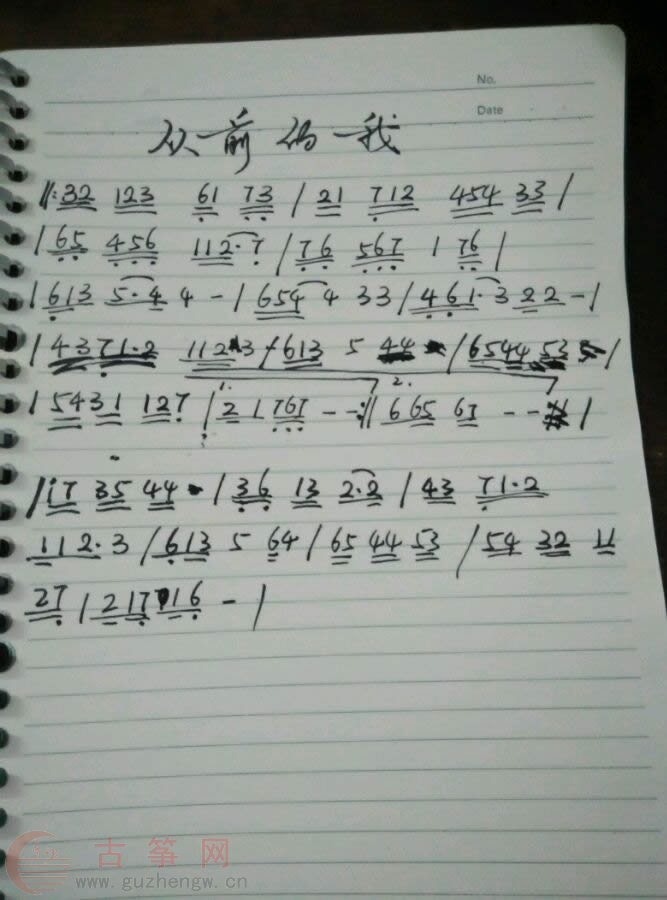 No.
Date
从前的我
‖: 32 123 61 73 / 21 712 454 33 /
/ 65 456 112·7 / 76 567 1 76 /
/ 613 5·4 4 - / 654 4 33 / 461·3 22 - /
/ 4371·2 112 3 / 613 5 44 / 6544 53 /
1. 2.
/ 5431 127 / 2 1 767 - - :‖ 6 65 67 - - /
/ 17 35 44 - / 36 13 2·2 / 43 71·2
112·3 / 613 5 64 / 65 44 53 / 54 32 11
27 / 217 16 - /
古筝网
www.guzhengw.cn